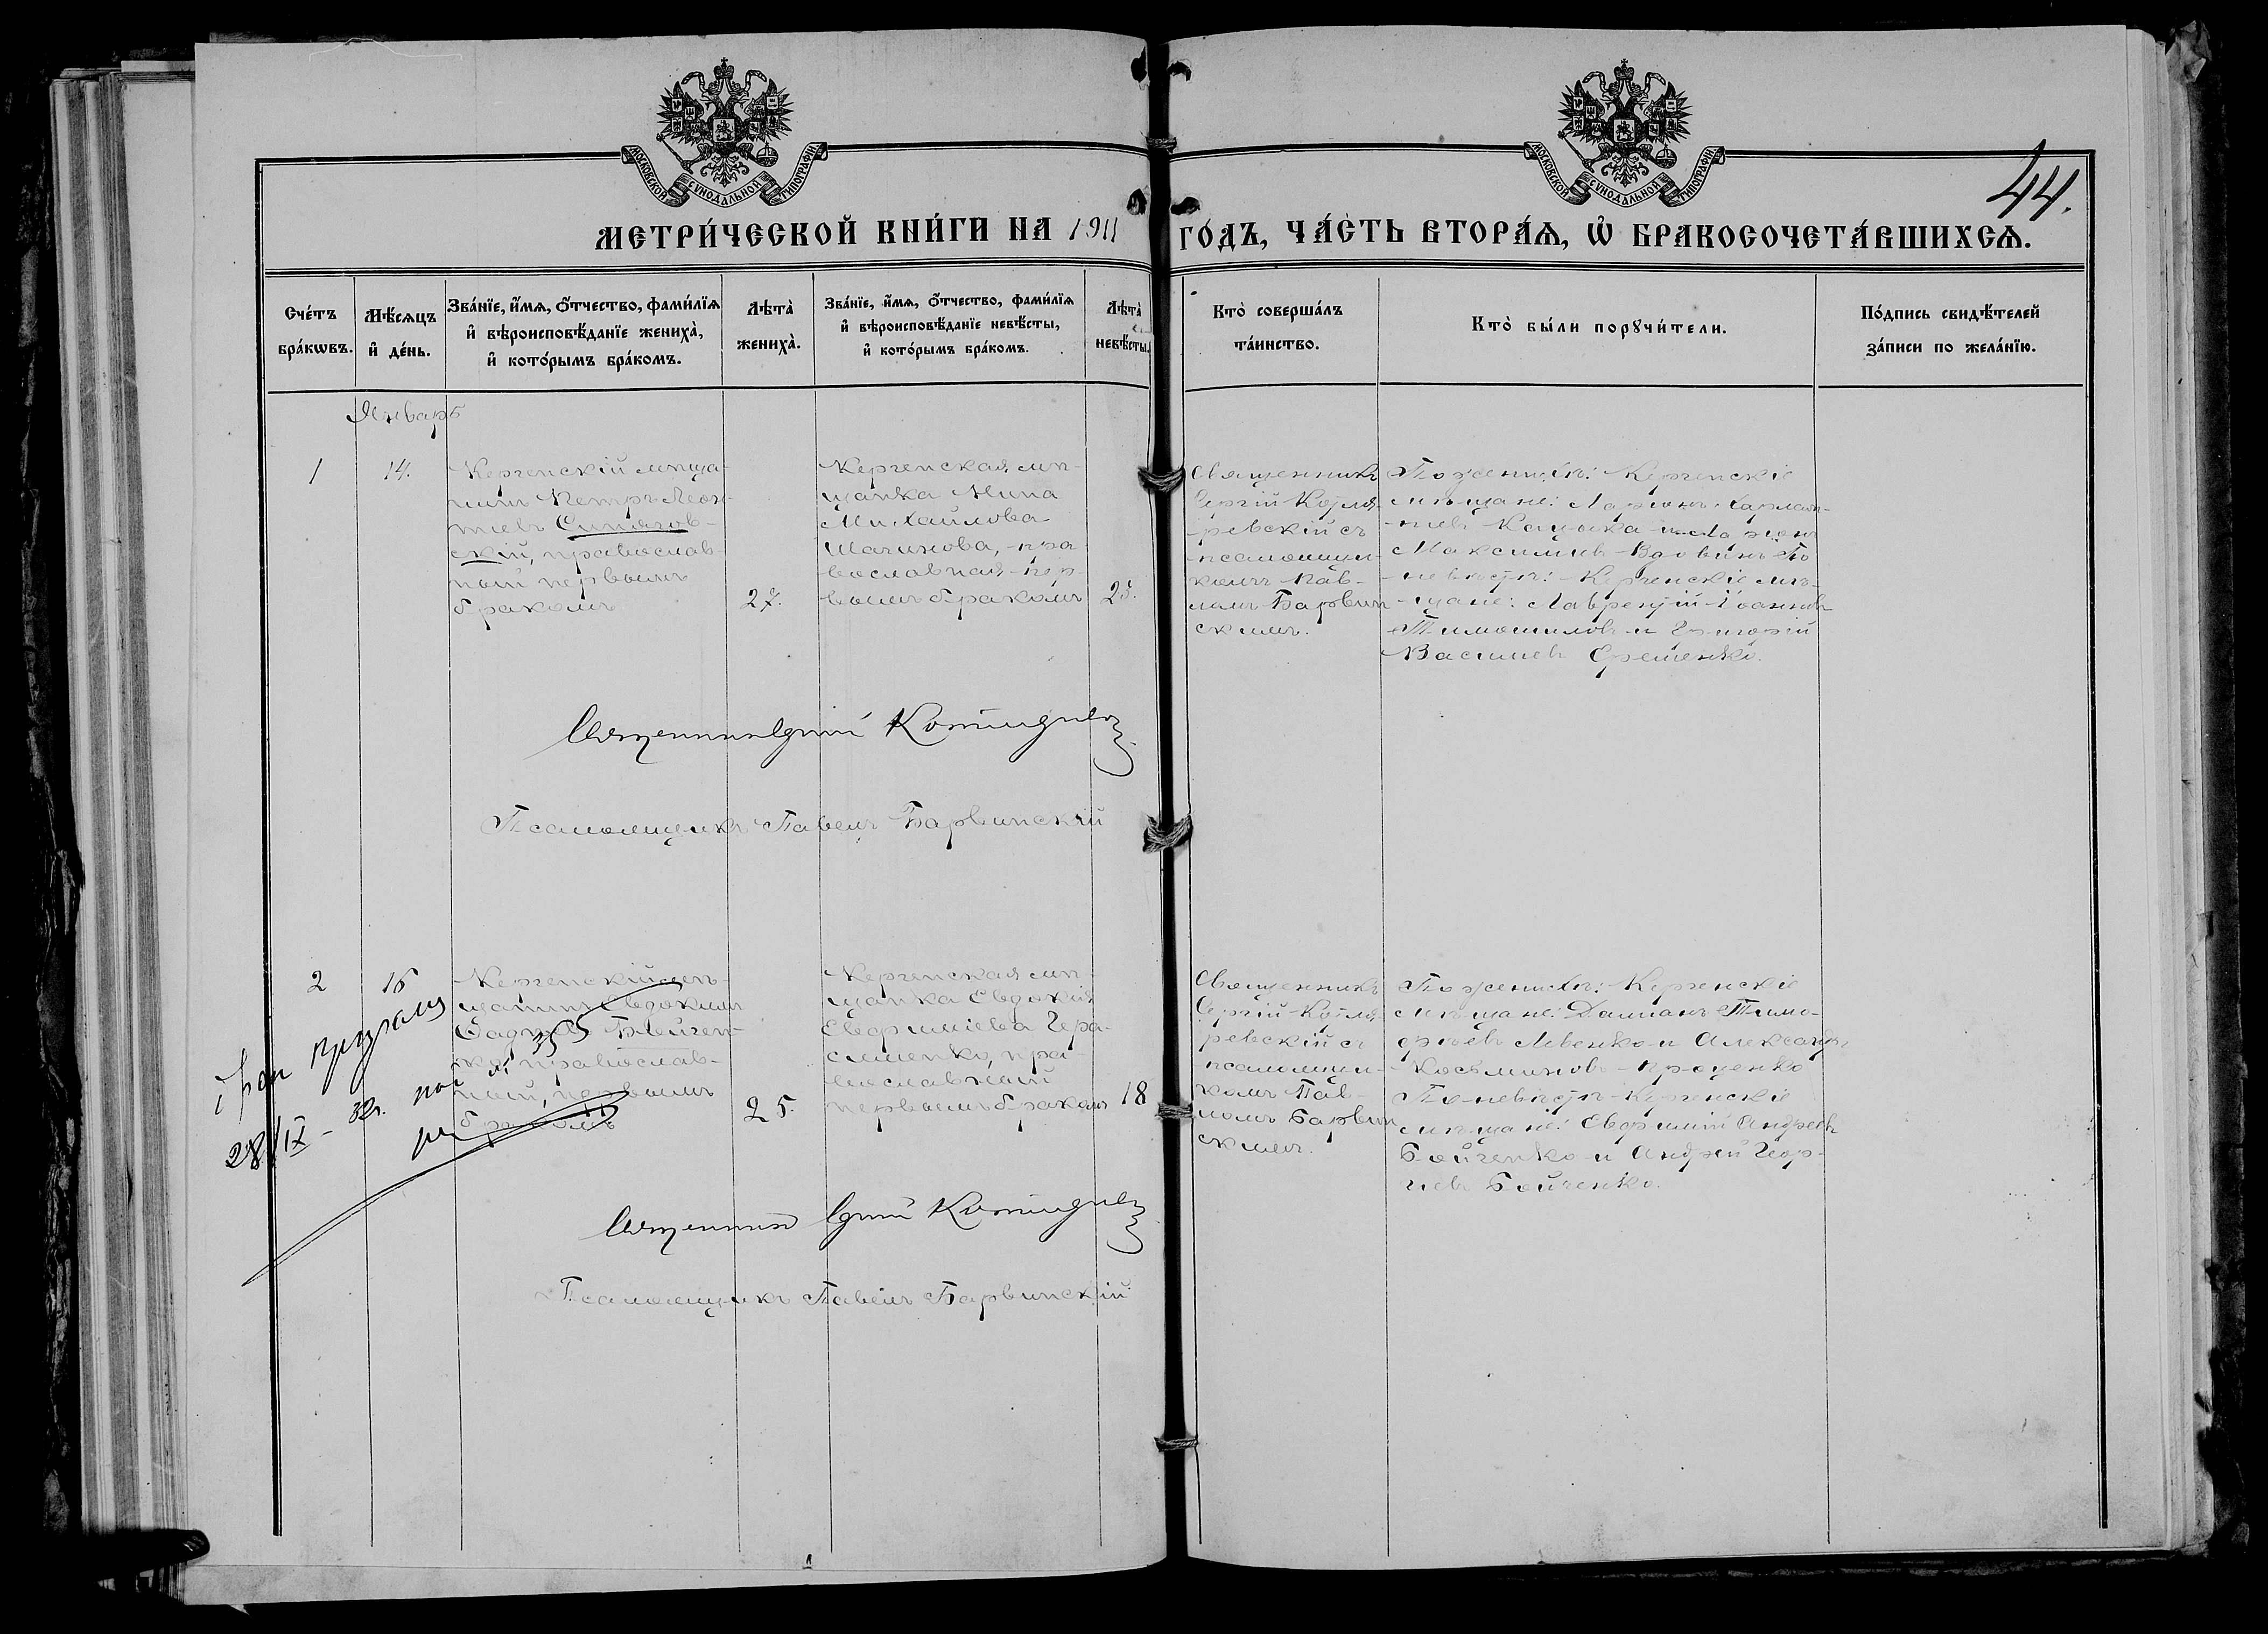 МОСКОВСКОЙ СѴНОДАЛЬНОЙ ТИПОГРАФІИ
МОСКОВСКОЙ СѴНОДАЛЬНОЙ ТИПОГРАФІИ
44.
МЕТРИ́ЧЕСКОЙ КНИ́ГИ НА 1911 ГО́ДЪ, ЧА́СТЬ ВТОРА́Ѧ, Ѡ҆ БРАКОСОЧЕТА́ВШИХСѦ.
Сче́тъ
бра́кѡвъ.
Мѣ́сѧцъ
и҆ де́нь.
Зва́нїе, и҆́мѧ, ѻ҆́тчество, фами́лїѧ
и҆ вѣроисповѣ́данїе жениха̀,
и҆ кото́рымъ бра́комъ.
Лѣта̀
жениха̀.
Зва́нїе, и҆́мѧ, ѻ҆́тчество, фами́лїѧ
и҆ вѣроисповѣ́данїе невѣ́сты,
и҆ кото́рымъ бра́комъ.
Лѣта̀
невѣ́сты.
Кто̀ соверша́лъ
та́инство.
Кто̀ бы́ли порꙋчи́тели.
По́дпись свидѣ́телей
за́писи по жела́нїю.
Январь
1
14.
Керченскій мѣща-
нинъ Петръ Леон-
тіевъ
скій, православ-
ный первымъ
бракомъ
27.
Керченская мѣ-
щанка Нина
Михайлова
пра-
вославная пер-
вымъ бракомъ
25.
Священникъ
Сергій Котля-
ревскій съ
псаломщи-
комъ Пав-
ломъ Барвин
скимъ.
По женихѣ: Керченскіе
мѣщане: Ларіонъ Харлам-
піевъ Кацыка и
Максимовъ Вдовинъ По
невѣстѣ: Керченскіе мѣ-
щане: Лаврентій Іоанновъ
и Григорій
Васильевъ Ерешенко.
Священникъ Сергій Котляревскій
Псаломщикъ Павелъ Барвинскій
2
16
Керченскій мѣ-
щанинъ Евдокимъ
Бойчен-
ко, православ-
ный, первымъ
бракомъ
25.
Керченская мѣ-
щанка Евдокія
Евфиміева Гера-
сименко, пра-
вославный
первымъ бракомъ
18
Священникъ
Сергій Котля-
ревскій съ
псаломщи-
комъ Пав-
ломъ Барвин
скимъ.
По женихѣ: Керченскіе
мѣщане: Даміанъ Тимо-
феевъ Левенко и Александръ
Косьминовъ Проценко
По невѣстѣ Керченскіе
мѣщане: Евфимій Андреевъ
Бойченко и Андрей Геор-
гіевъ Бойченко.
28/IX - 32г.
Священникъ Сергій Котляревскій
Псаломщикъ Павелъ Барвинскій